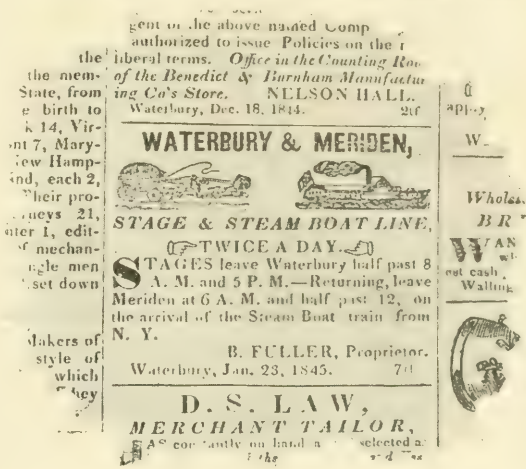 the
the mem-
State, from
e birth to
k 14, Vir-
nt 7, Mary-
ew Hamp-
nd, each 2,
Their pro-
neys 21,
nter 1, edit-
f mechan-
ngle men
set down
Makers of
style of
which
They
gent of the above named Comp
authorized to issue Policies on the
liberal terms. Office in the Counting Roo
of the Benedict & Burnham Manufactur
ing Co's Store. NELSON HALL.
Waterbury, Dec. 18, 1844. 2tf
WATERBURY & MERIDEN,
STAGE & STEAM BOAT LINE,
TWICE A DAY.
STAGES leave Waterbury half past 8
A. M. and 5 P. M.—Returning, leave
Meriden at 6 A. M. and half past 12, on
the arrival of the Steam Boat train from
N. Y.
B. FULLER, Proprietor.
Waterbury, Jan. 23, 1845.
D. S. LAW,
MERCHANT TAILOR,
HAS constantly on hand a selected
W
Wholes
BR
WAN
cash
Walling